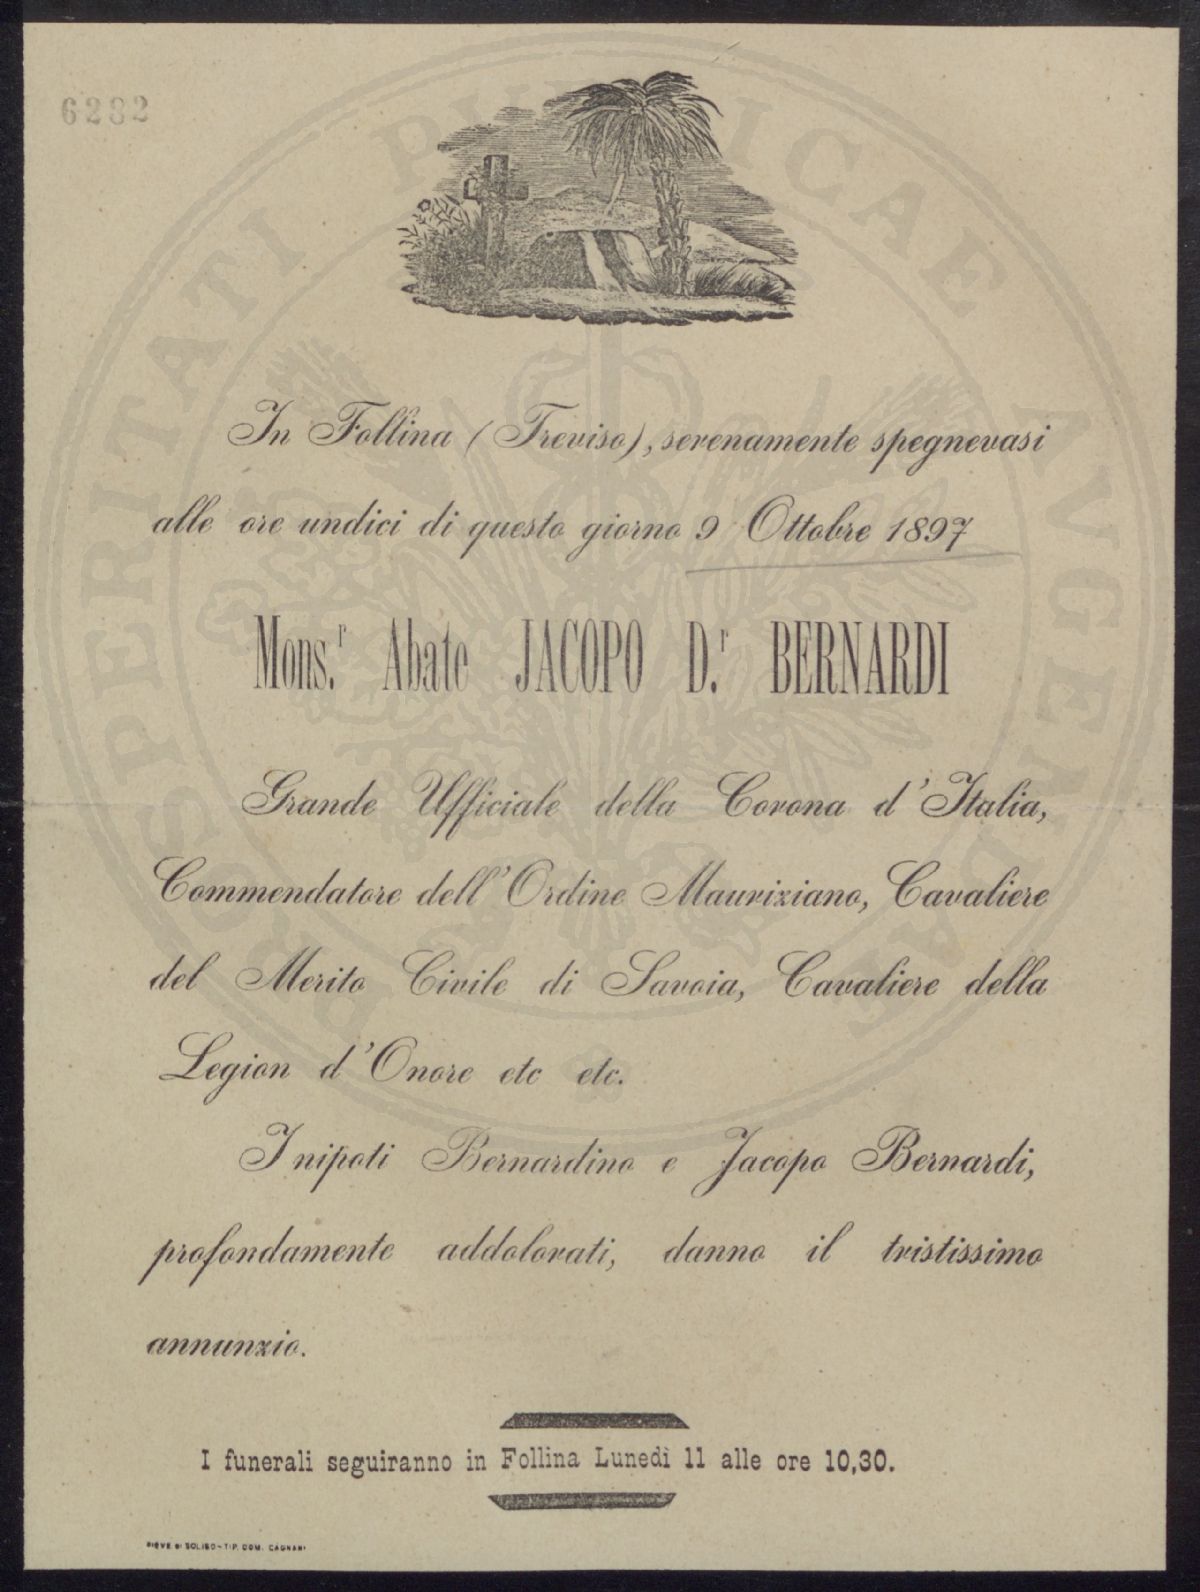 6282
In Follina (Treviso), serenamente spegnevasi
alle ore undici di questo giorno 9 Ottobre 1897
Mons.r Abate JACOPO D.r BERNARDI
Grande Ufficiale della Corona d'Italia,
Commendatore dell'Ordine Mauriziano, Cavaliere
del Merito Civile di Savoia, Cavaliere della
Legion d'Onore etc etc.
I nipoti Bernardino e Jacopo Bernardi,
profondamente addolorati, danno il tristissimo
annunzio.
I funerali seguiranno in Follina Lunedì 11 alle ore 10,30.
PIEVE DI SOLIGO-TIP. DOM. CAGNANI
PROSPERITATI PUBLICAE AVGENDAE